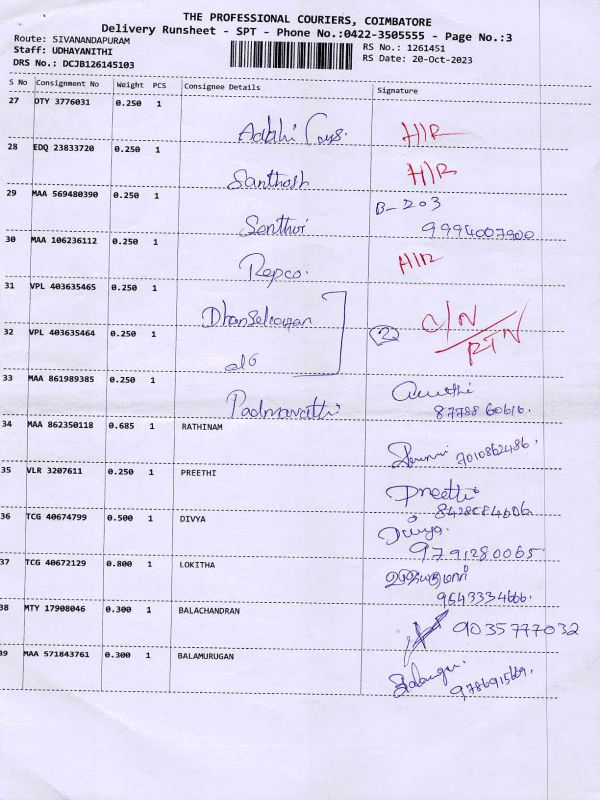 THE PROFESSIONAL COURIERS, COIMBATORE
Delivery Runsheet - SPT - Phone No.:0422-3505555 - Page No.:3
Route: SIVANANDAPURAM
Staff: UDHAYANITHI RS No.: 1261451
DRS No.: DCJB126145103 RS Date: 20-Oct-2023
S No Consignment No Weight PCS Consignee Details Signature
27 DTY 3776031 0.250 1
H/R
28 EDQ 23833720 0.250 1
Santhosh H/R
29 MAA 569480390 0.250 1 B-203
Senthil 9994007900
30 MAA 106236112 0.250 1 H/R
Repco.
31 VPL 403635465 0.250 1
C/N
32 VPL 403635464 0.250 1 2 RTN
do
33 MAA 861989385 0.250 1
Padmavathi 8778860616.
34 MAA 862350118 0.685 1 RATHINAM
7010862486.
35 VLR 3207611 0.250 1 PREETHI
Preethi
36 TCG 40674799 0.500 1 DIVYA
Divya
9791280065
37 TCG 40672129 0.800 1 LOKITHA
9543334666.
38 MTY 17908046 0.300 1 BALACHANDRAN
9035777032
39 MAA 571843761 0.300 1 BALAMURUGAN